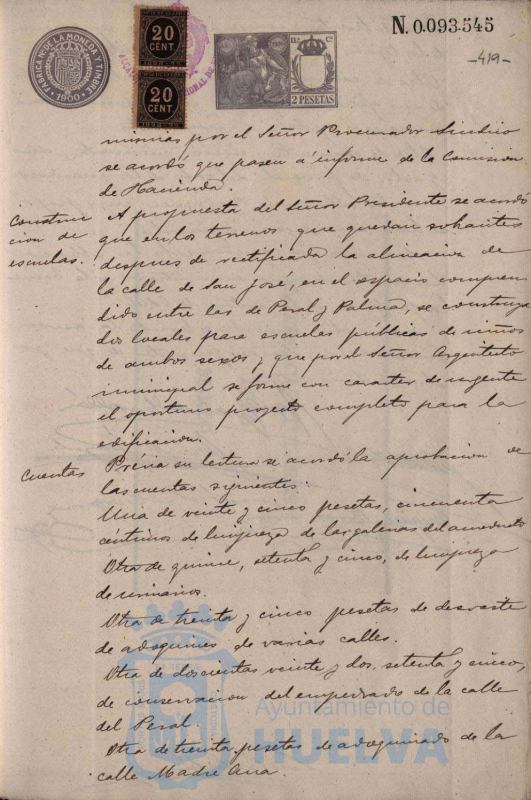 FABRICA N. DE LA MONEDA Y TIMBRE
1900
20
CENT.
1898-99
20
CENT.
1898-99
11.ª C.ª
2 PESETAS
N. 0.093.545
-419-
mismas por el Señor Procurador Sindico
se acordó que pasen á informe de la Comision
de Hacienda.
Construc
cion de
escuelas.
A propuesta del Señor Presidente se acordó
que en los terrenos que quedan sobrantes
despues de rectificada la alineacion de
la calle de San José, en el espacio compren
dido entre las de Peral y Palma, se construya
dos locales para escuelas públicas de niños
de ambos sexos y que por el Señor Arquitecto
municipal se forme con caracter de urgente
el oportuno proyecto completo para la
edificacion.
Cuentas
Prévia su lectura se acordó la aprobacion de
las cuentas siguientes:
Una de veinte y cinco pesetas, cincuenta
centimos de limpieza de las galerias del acueducto
Otra de quince, setenta y cinco, de limpieza
de urinarios.
Otra de treinta y cinco pesetas de desvaste
de adoquines de varias calles.
Otra de doscientas veinte y dos, setenta y cinco,
de conservacion del empedrado de la calle
del Peral.
Otra de treinta pesetas de adoquinado de la
calle Madre Ana
Ayuntamiento de
HUELVA